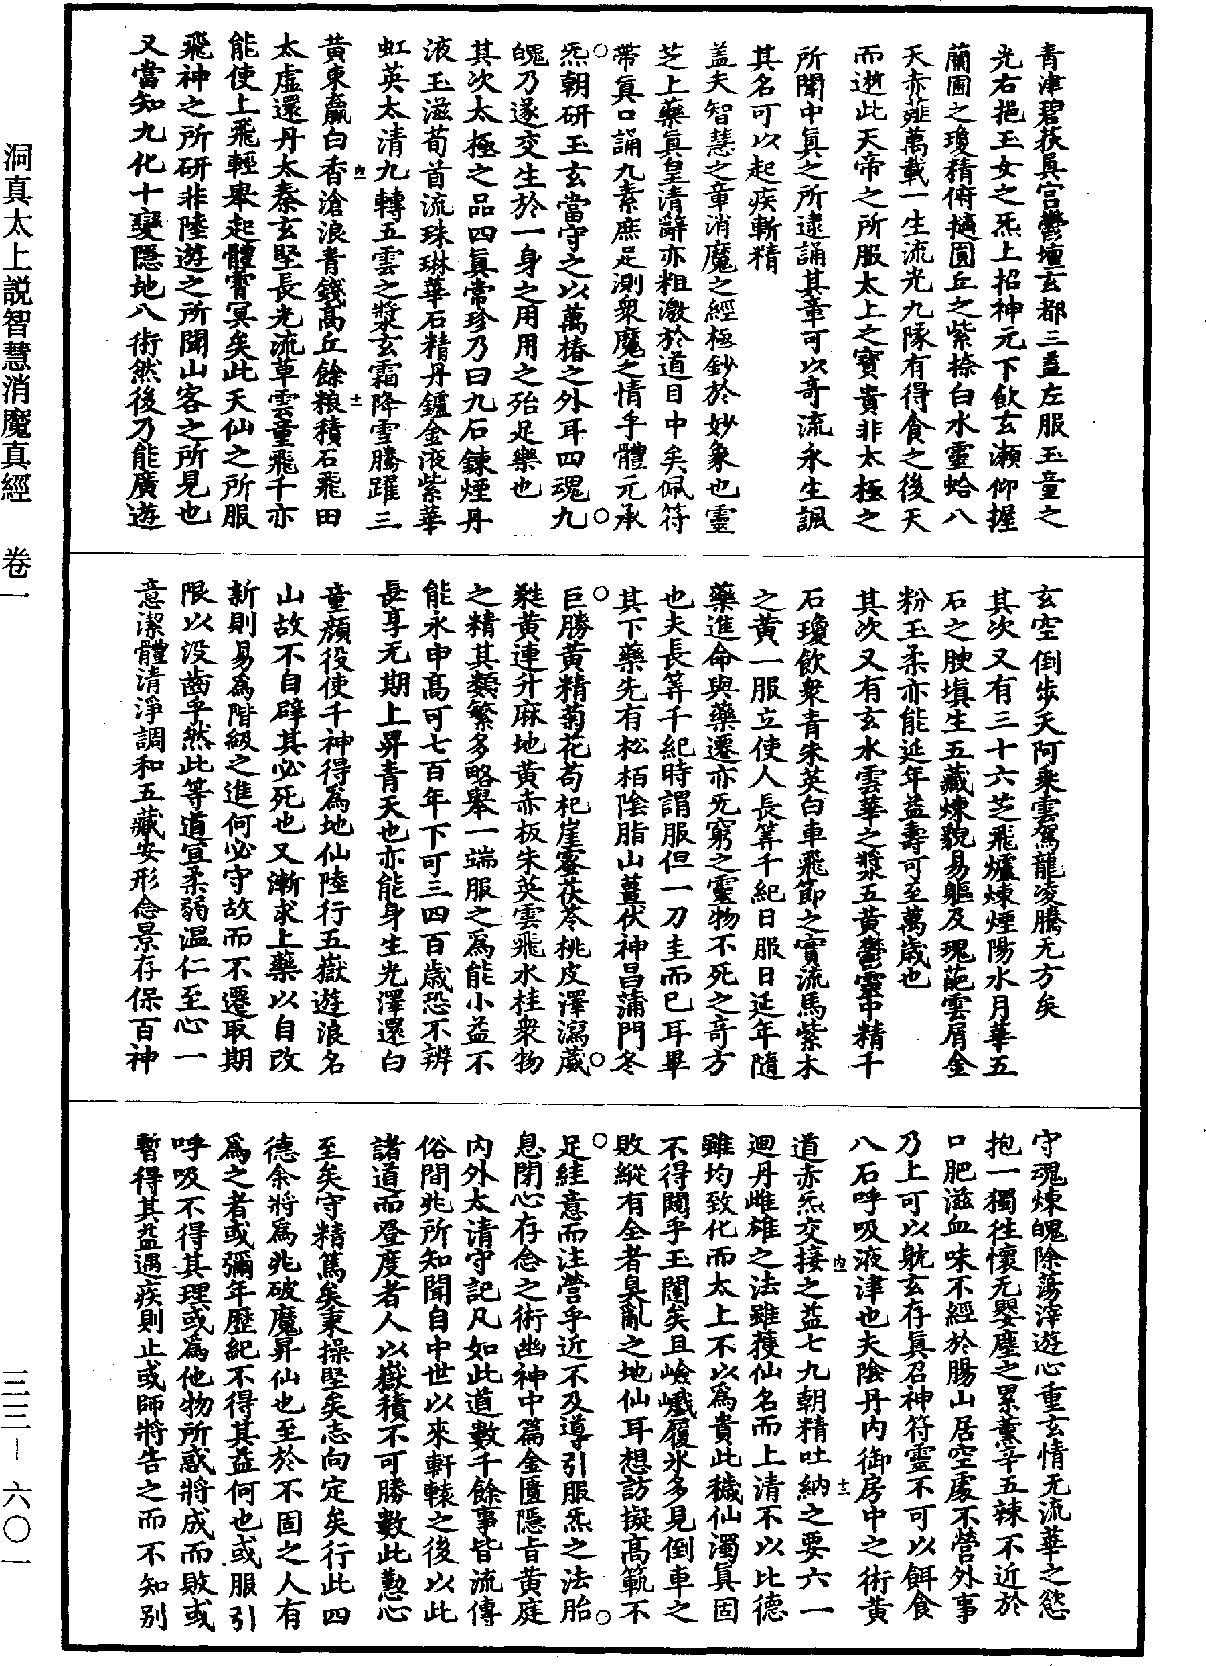 青津碧荻員宮鬱壇玄都三蓋左服玉童之
光右挹玉女之炁上招神元下飲玄瀬仰握
蘭圃之瓊精俯擿圓丘之紫柰白水靈蛤八
天赤薤萬載一生流光九隊有得食之後天
而逝此天帝之所服太上之寶貴非太極之
所聞中真之所逮誦其章可以奇流永生諷
其名可以起疾斬精
蓋夫智慧之章消魔之經極鈔於妙象也靈
芝上藥真皇清辭亦粗激於道目中矣佩符
帶真口誦九素庶足測衆魔之情乎體元承
炁朝研玉玄當守之以萬椿之外耳四魂九
魄乃遂交生於一身之用用之殆足樂也
其次太極之品四真常珍乃曰九石鍊煙丹
液玉滋荀首流珠琳華石精丹鑪金液紫華
虹英太清九轉五雲之漿玄霜降雪騰躍三
黃東瀛白香滄浪青錢高丘餘粮積石飛田
太虛還丹太秦玄堅長光流草雲童飛千亦
能使上飛輕舉起體霄冥矣此天仙之所服
飛神之所研非陸遊之所聞山客之所見也
又當知九化十變隱地八術然後乃能廣遊
玄空倒步天阿乘雲駕龍凌騰无方矣
其次又有三十六芝飛爐煉煙陽水月華五
石之腴填生五藏煉貌易軀及瑰葩雲屑金
粉玉柔亦能延年益壽可至萬歲也
其次又有玄水雲華之漿五黃鬱靈中精千
石瓊飲衆青朱英白車飛節之實流馬紫木
之黃一服立使人長筭千紀日服日延年隨
藥進命與藥遷亦无窮之靈物不死之奇方
也夫長筭千紀時謂服但一刀圭而已耳畢
其下藥先有松栢陰脂山薑伏神昌蒲門冬
巨勝黃精菊花苟杞崖蜜茯苓桃皮澤瀉葳
蕤黃連升麻地黃赤板朱英雲飛水桂衆物
之精其類繁多略舉一端服之為能小益不
能永申高可七百年下可三四百歲恐不辨
長享无期上昇青天也亦能身生光澤還白
童顏役使千神得為地仙陸行五嶽遊浪名
山故不自辟其必死也又漸求上藥以自改
新則易為階級之進何必守故而不遷取期
限以没齒乎然此等道宜柔弱溫仁至心一
意潔體清淨調和五藏安形念景存保百神
守魂煉魄除蕩滓遊心重玄情无流華之慾
抱一獨往懷无嬰塵之累薰辛五辣不近於
口肥滋血味不經於腸山居空處不營外事
乃上可以躭玄存真召神符靈不可以餌食
八石呼吸液津也夫陰丹內御房中之術黃
道赤炁交接之益七九朝精吐納之要六一
迴丹雌雄之法雖獲仙名而上清不以比德
雖均致化而太上不以為貴此穢仙濁真固
不得闚乎玉闈矣且嶮巇履氷多見倒車之
敗縱有全者臭亂之地仙耳想訪擬高範不
足絓意而注營乎近不及導引服炁之法胎
息閉心存念之術幽神中篇金匱隱旨黃庭
內外太清守記凡如此道數千餘事皆流傳
俗間兆所知聞自中世以來軒轅之後以此
諸道而登度者人以嶽積不可勝數此懃心
至矣守精篤矣秉操堅矣志向定矣行此四
德余將為兆破魔昇仙也至於不固之人有
為之者或彌年歷紀不得其益何也或服引
呼吸不得其理或為他物所惑將成而敗或
暫得其益遇疾則止或師將告之而不知别
洞真太上説智慧消魔真經 卷一
三三－六〇一